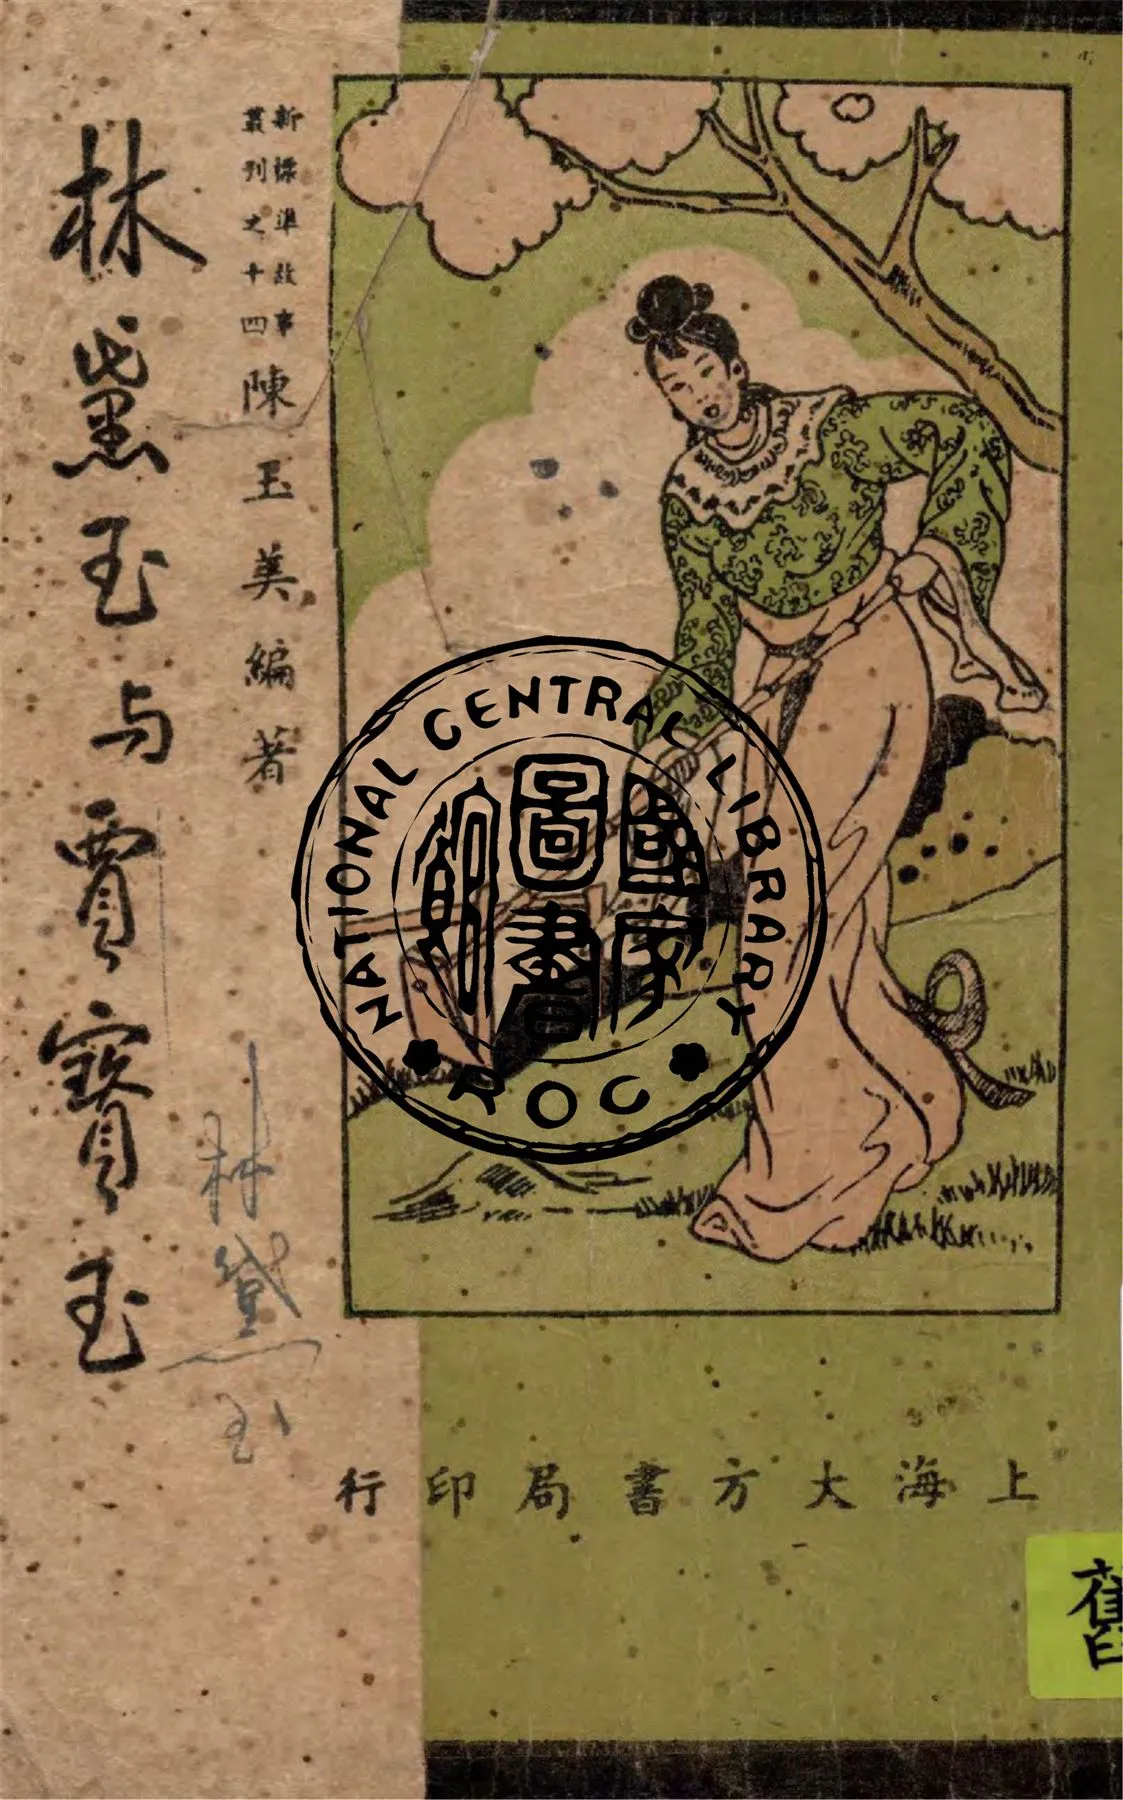 林黛玉与賈寶玉
新標準故事
叢刊之十四
陳玉英編著
林黛玉
上海大方書局印行
NATIONAL CENTRAL LIBRARY
ROC
國家
圖書
館
舊